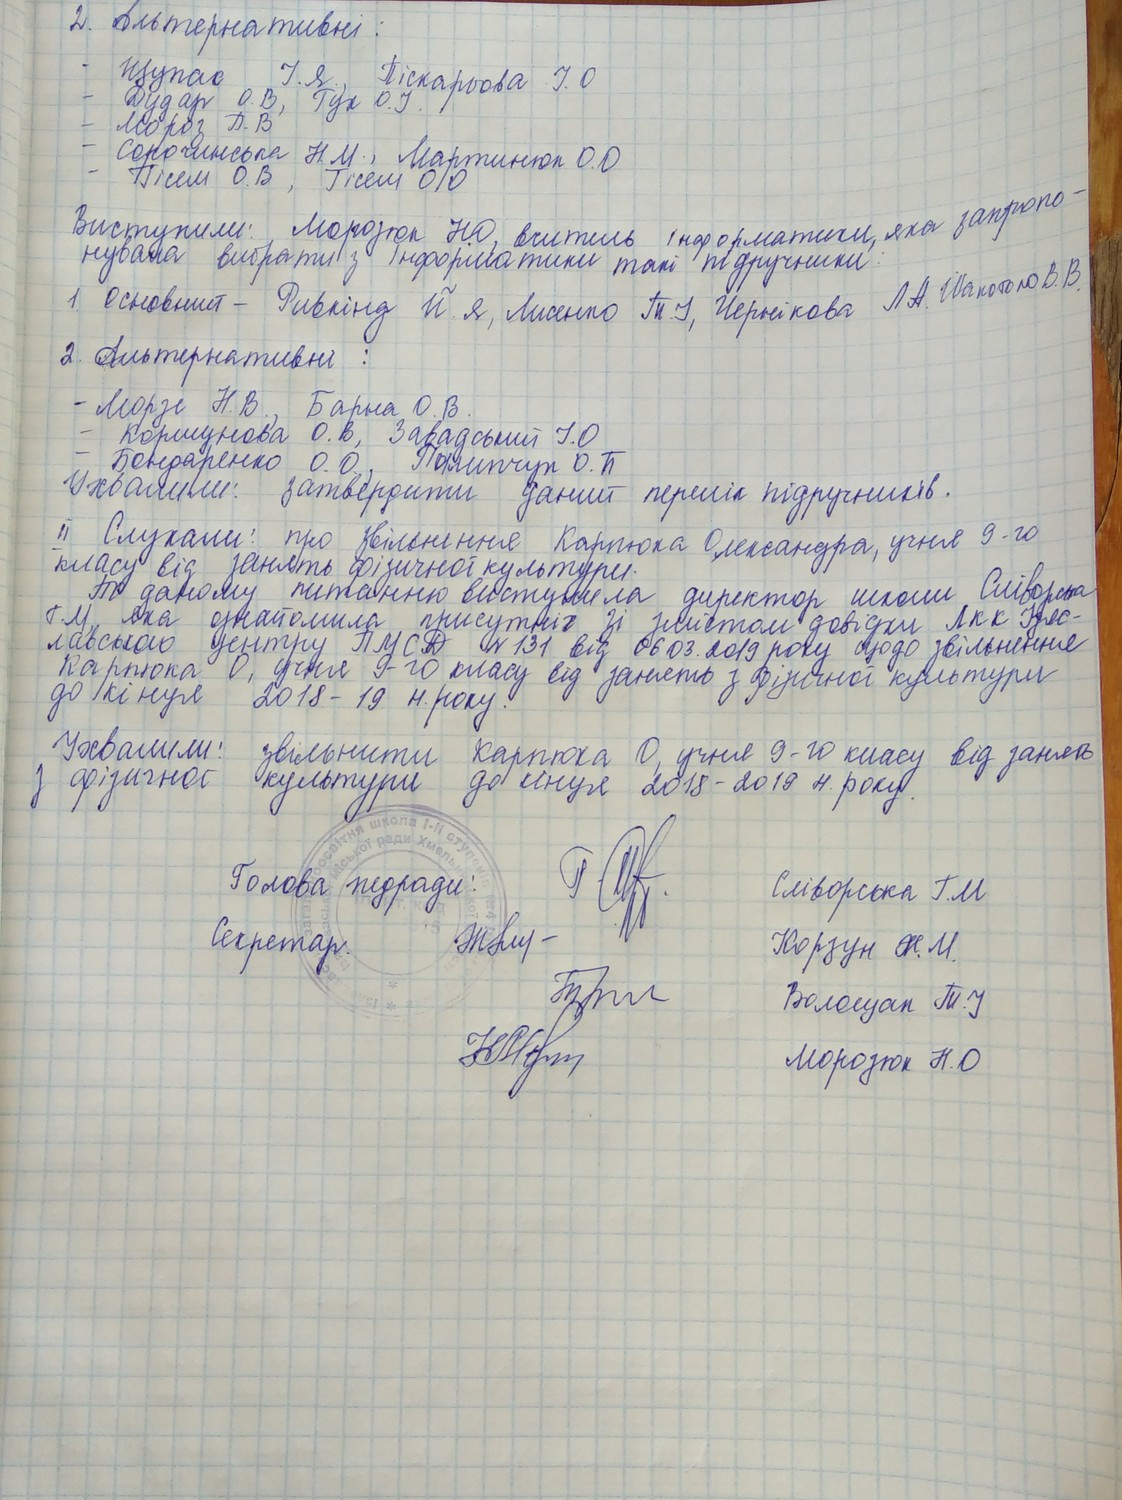 2. Альтернативні:
- Щупак І.Я., Піскарьова І.О
- Дудар О.В, Гук О.І.
- Мороз П.В
- Сорочинська Н.М., Мартинюк О.О
- Пісем О.В, Гісем О.О
Виступили: Морозюк Н.О, вчитель інформатики, яка запропо-
нувала вибрати з інформатики такі підручники:
1. Основний - Ривкінд Й.Я, Лисенко Т.І, Чернікова Л.А. Шакотько В.В.
2. Альтернативні:
- Морзе Н.В., Барна О.В.
- Коршунова О.В, Завадський І.О
- Бондаренко О.О, Пилипчук О.П
Ухвалили: затвердити даний перелік підручників.
ІІ Слухали: про звільнення Карпюка Олександра, учня 9-го
класу від занять фізичної культури.
По даному питанню виступила директор школи Сліворська
Г.М, яка ознайомила присутніх зі змістом довідки ЛКК Ізяс-
лавського центру ПМСД №131 від 06.03.2019 року щодо звільнення
Карпюка О, учня 9-го класу від занять з фізичної культури
до кінця 2018-19 н.року.
Ухвалили: звільнити Карпюка О, учня 9-го класу від занять
з фізичної культури до кінця 2018-2019 н.року.
Голова педради: Сліворська Г.М
Секретар. Корзун Ж.М.
Волощак Т.І
Морозюк Н.О